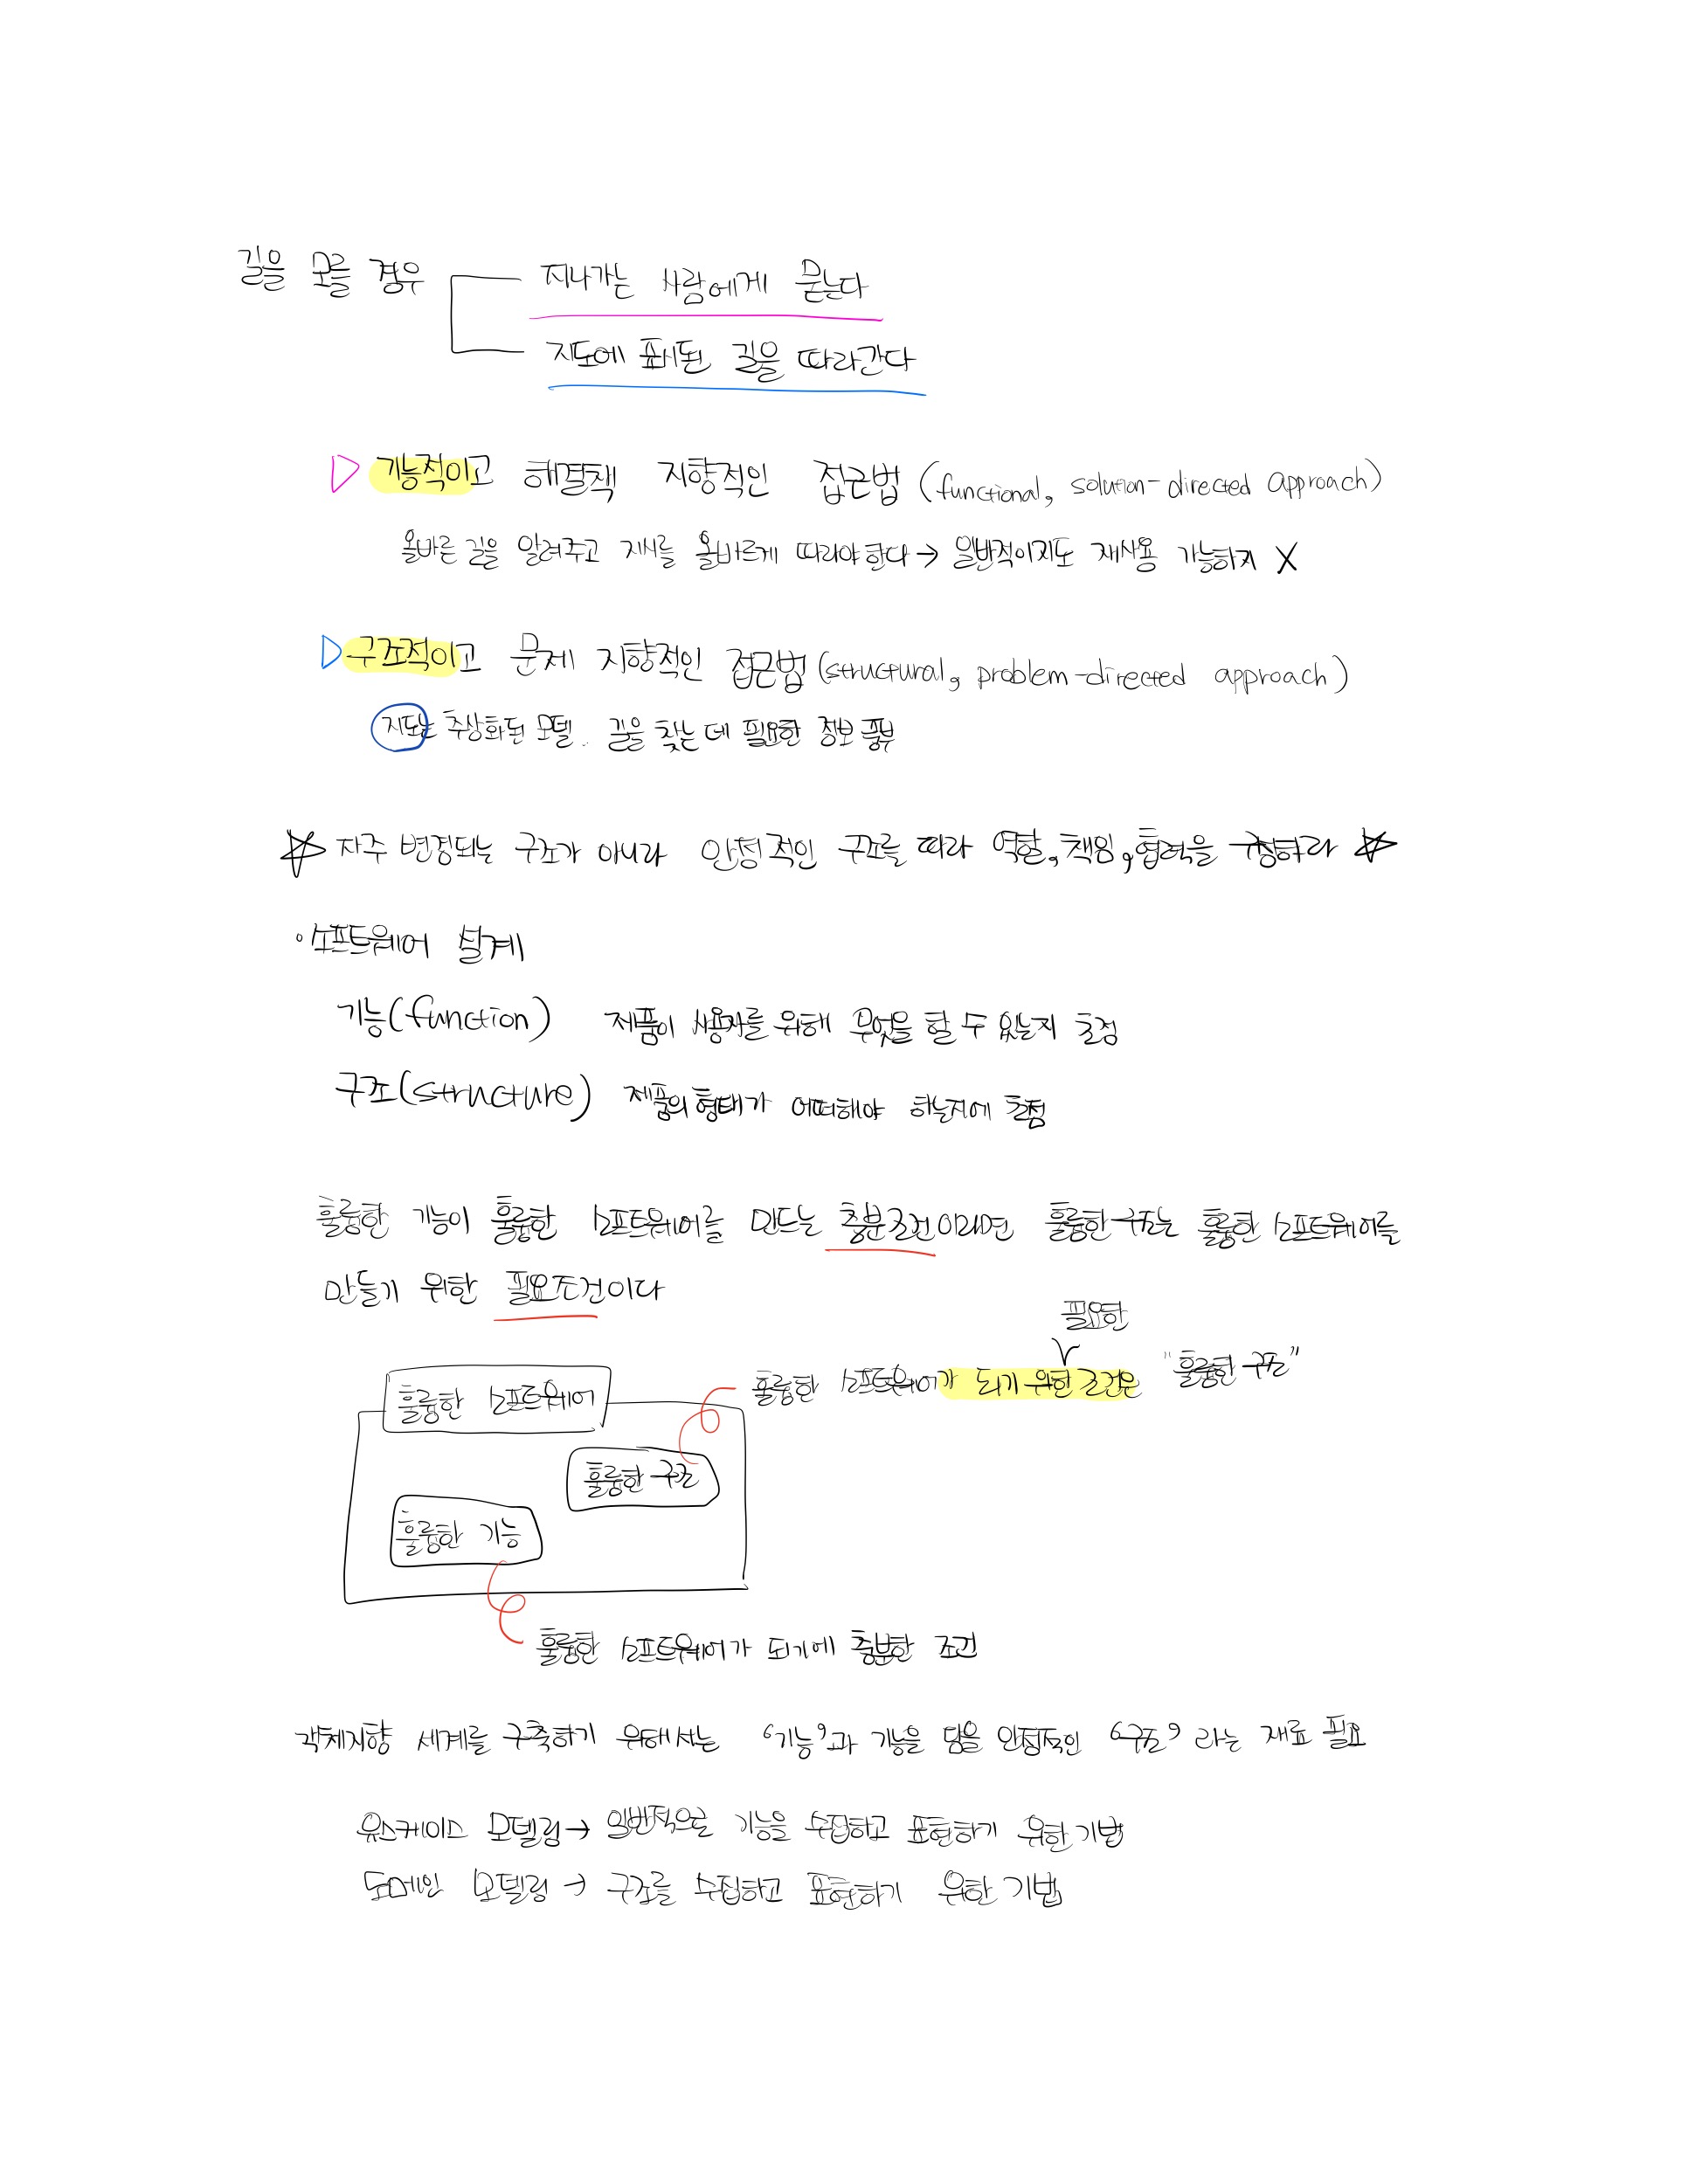 길을 모를 경우
지나가는 사람에게 묻는다
지도에 표시된 길을 따라간다
▷ 기능적이고 해결책 지향적인 접근법 (functional, solution-directed approach)
올바른 길을 알려주고 지시를 올바르게 따라야한다 → 일반적이지도 재사용 가능하지 X
▷ 구조적이고 문제 지향적인 접근법 (structural, problem-directed approach)
지도는 추상화된 모델. 길을 찾는데 필요한 정보 풍부
☆ 자주 변경되는 구조가 아니라 안정적인 구조를 따라 역할, 책임, 협력을 구성하라 ☆
• 소프트웨어 설계
기능(function) 제품이 사용자를 위해 무엇을 할 수 있는지 초점
구조(structure) 제품의 형태가 어떠해야 하는지에 초점
훌륭한 기능이 훌륭한 소프트웨어를 만드는 충분조건이라면 훌륭한 구조는 훌륭한 소프트웨어를
만들기 위한 필요조건이다
필요한
훌륭한 소프트웨어가 되기 위한 조건은 "훌륭한 구조"
훌륭한 소프트웨어
훌륭한 구조
훌륭한 기능
훌륭한 소프트웨어가 되기에 충분한 조건
객체지향 세계를 구축하기 위해서는 '기능'과 기능을 담을 안정적인 '구조' 라는 재료 필요
유스케이스 모델링 → 일반적으로 기능을 수집하고 표현하기 위한 기법
도메인 모델링 → 구조를 수집하고 표현하기 위한 기법